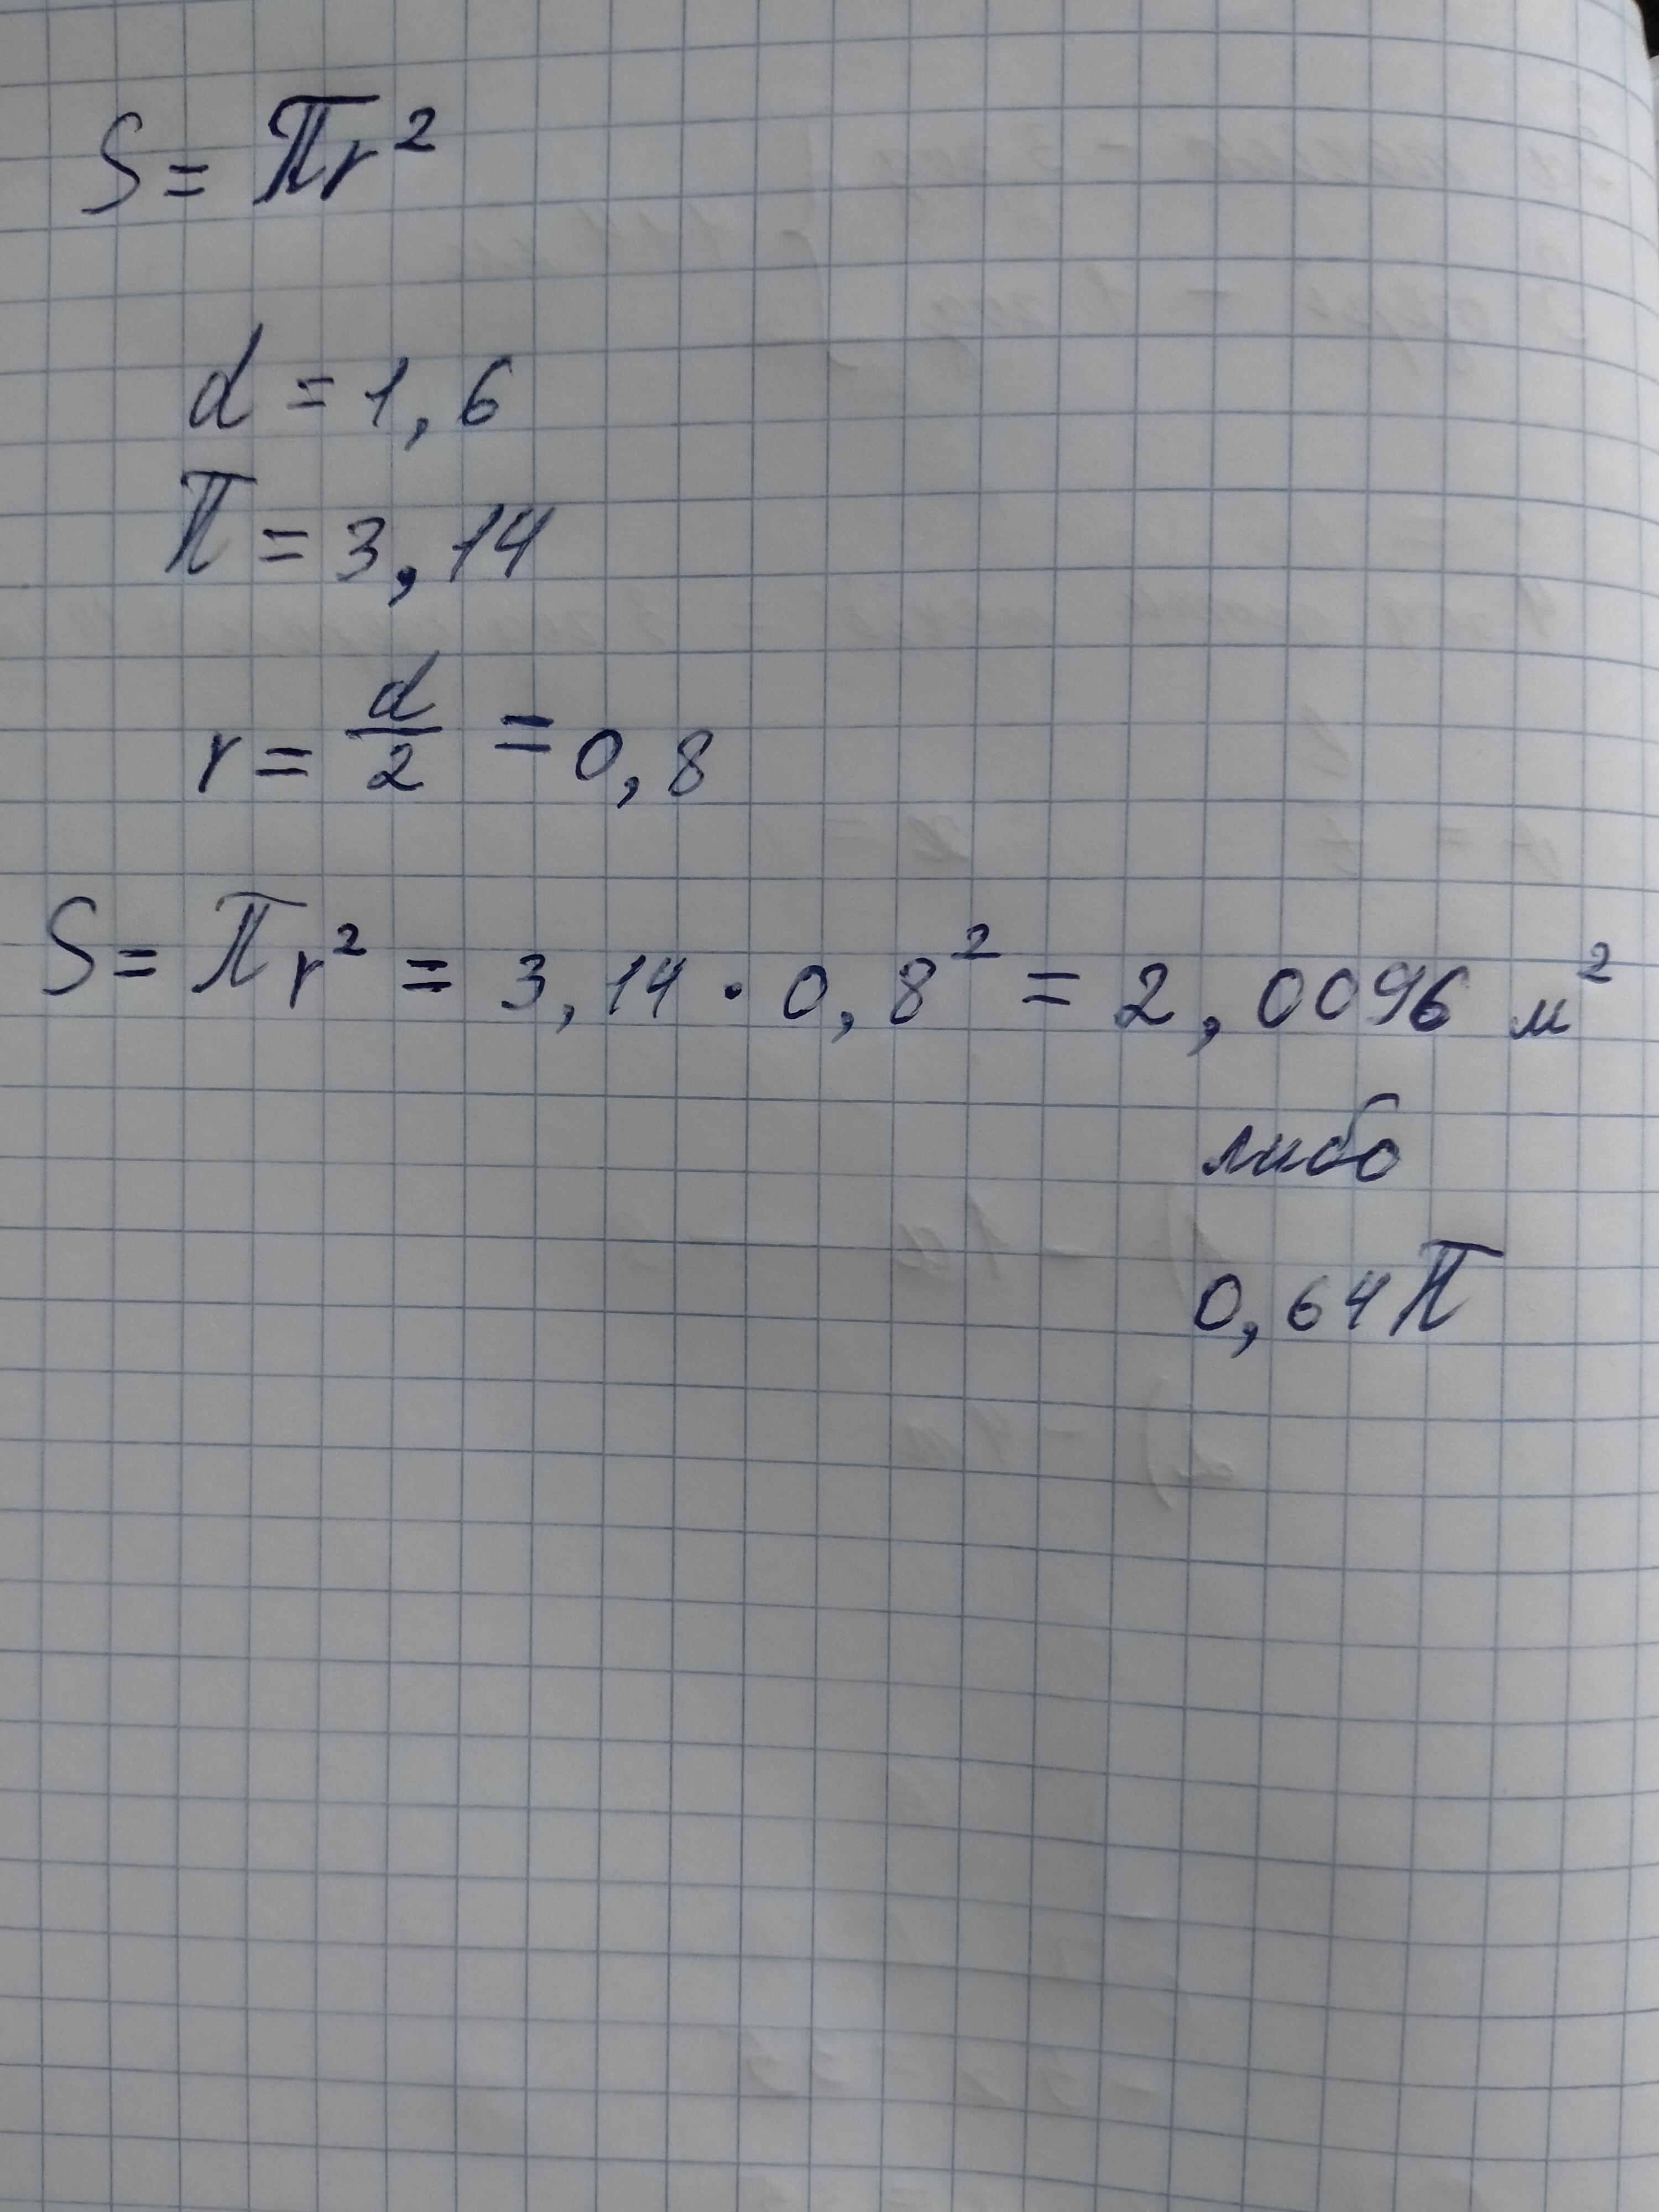 S = πr²
d = 1,6
π = 3,14
r = d/2 = 0,8
S = πr² = 3,14 · 0,8² = 2,0096 м²
либо
0,64π